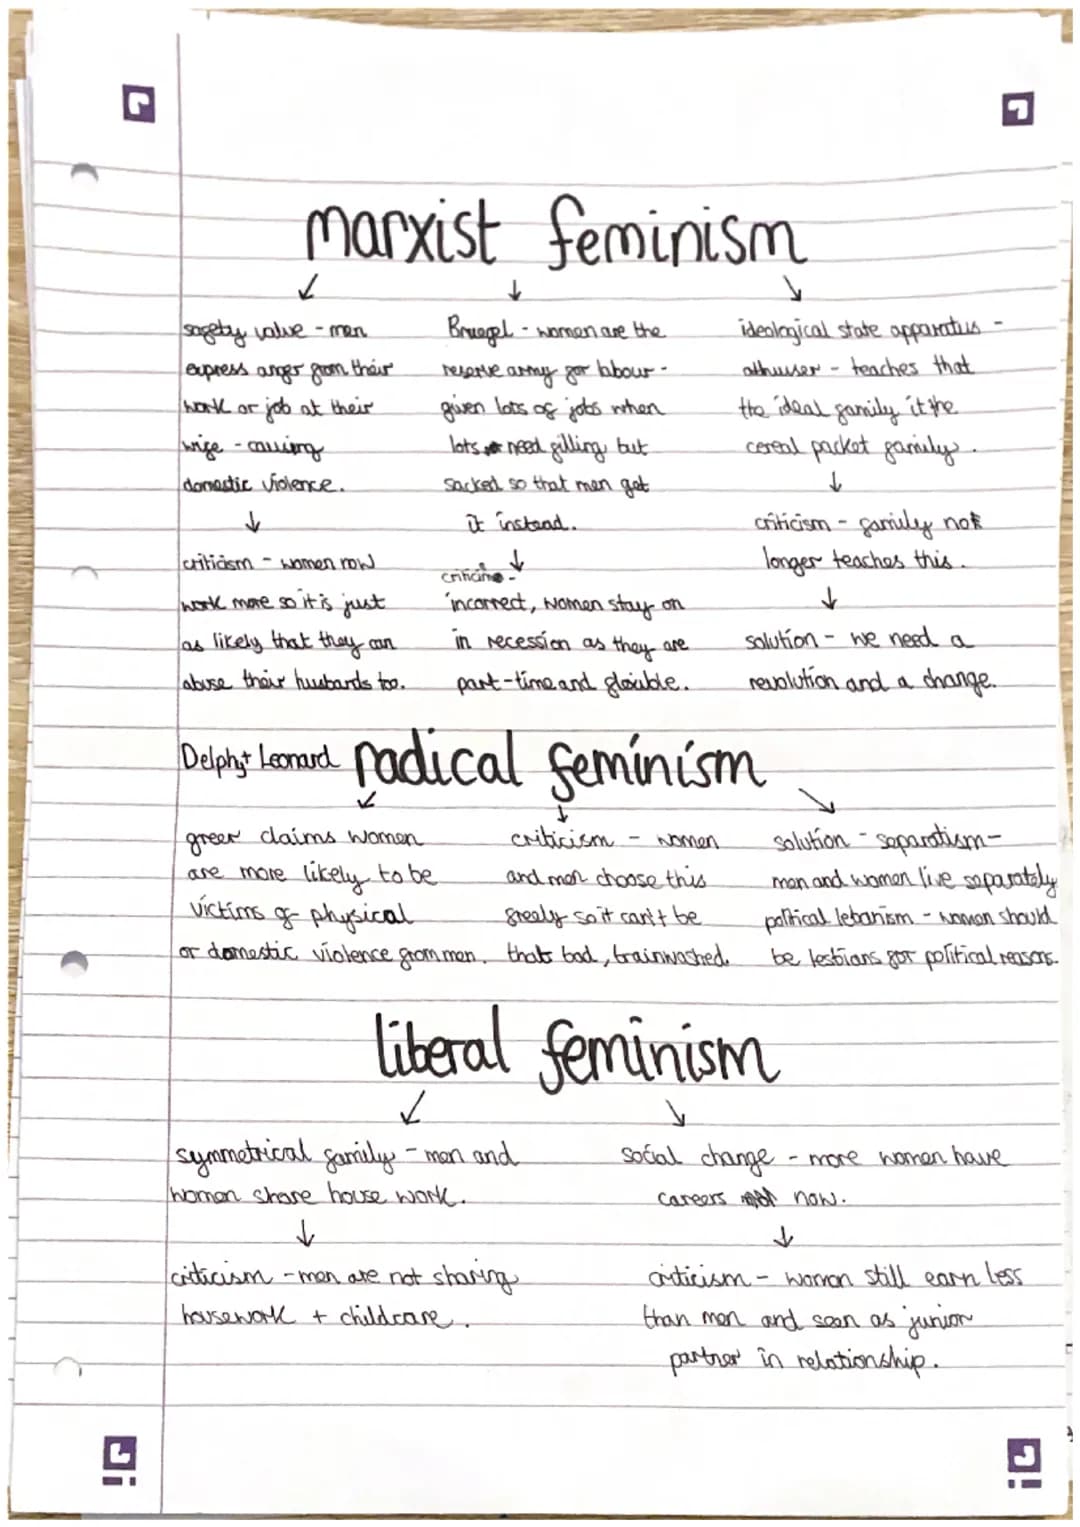 marxist feminism
safety valve - men
express anger from their
work or job at their
wife - causing
domestic violence.
criticism - women now
work more so it is just
as likely that they can
abuse their husbands too.
Bruegel - women are the
reserve army for labour -
given lots of jobs when
lots need filling but
sacked so that men get
it instead.
criticism -
incorrect, women stay on
in recession as they are
part-time and flexible.
ideological state apparatus -
althusser - teaches that
the ideal family it the
cereal packet family.
criticism - family not
longer teaches this.
solution - we need a
revolution and a change.
Delphy + Leonard radical feminism
greer claims women
are more likely to be
victims of physical
or domestic violence from men.
criticism - women
and men choose this
freely so it can't be
that bad, brainwashed.
solution - separatism -
men and women live separately
political lebanism - women should
be lesbians for political reasons.
liberal feminism
symmetrical family - men and
women share house work.
criticism - men are not sharing
housework + childcare.
social change - more women have
careers now.
criticism - women still earn less
than men and seen as junior
partner in relationship.